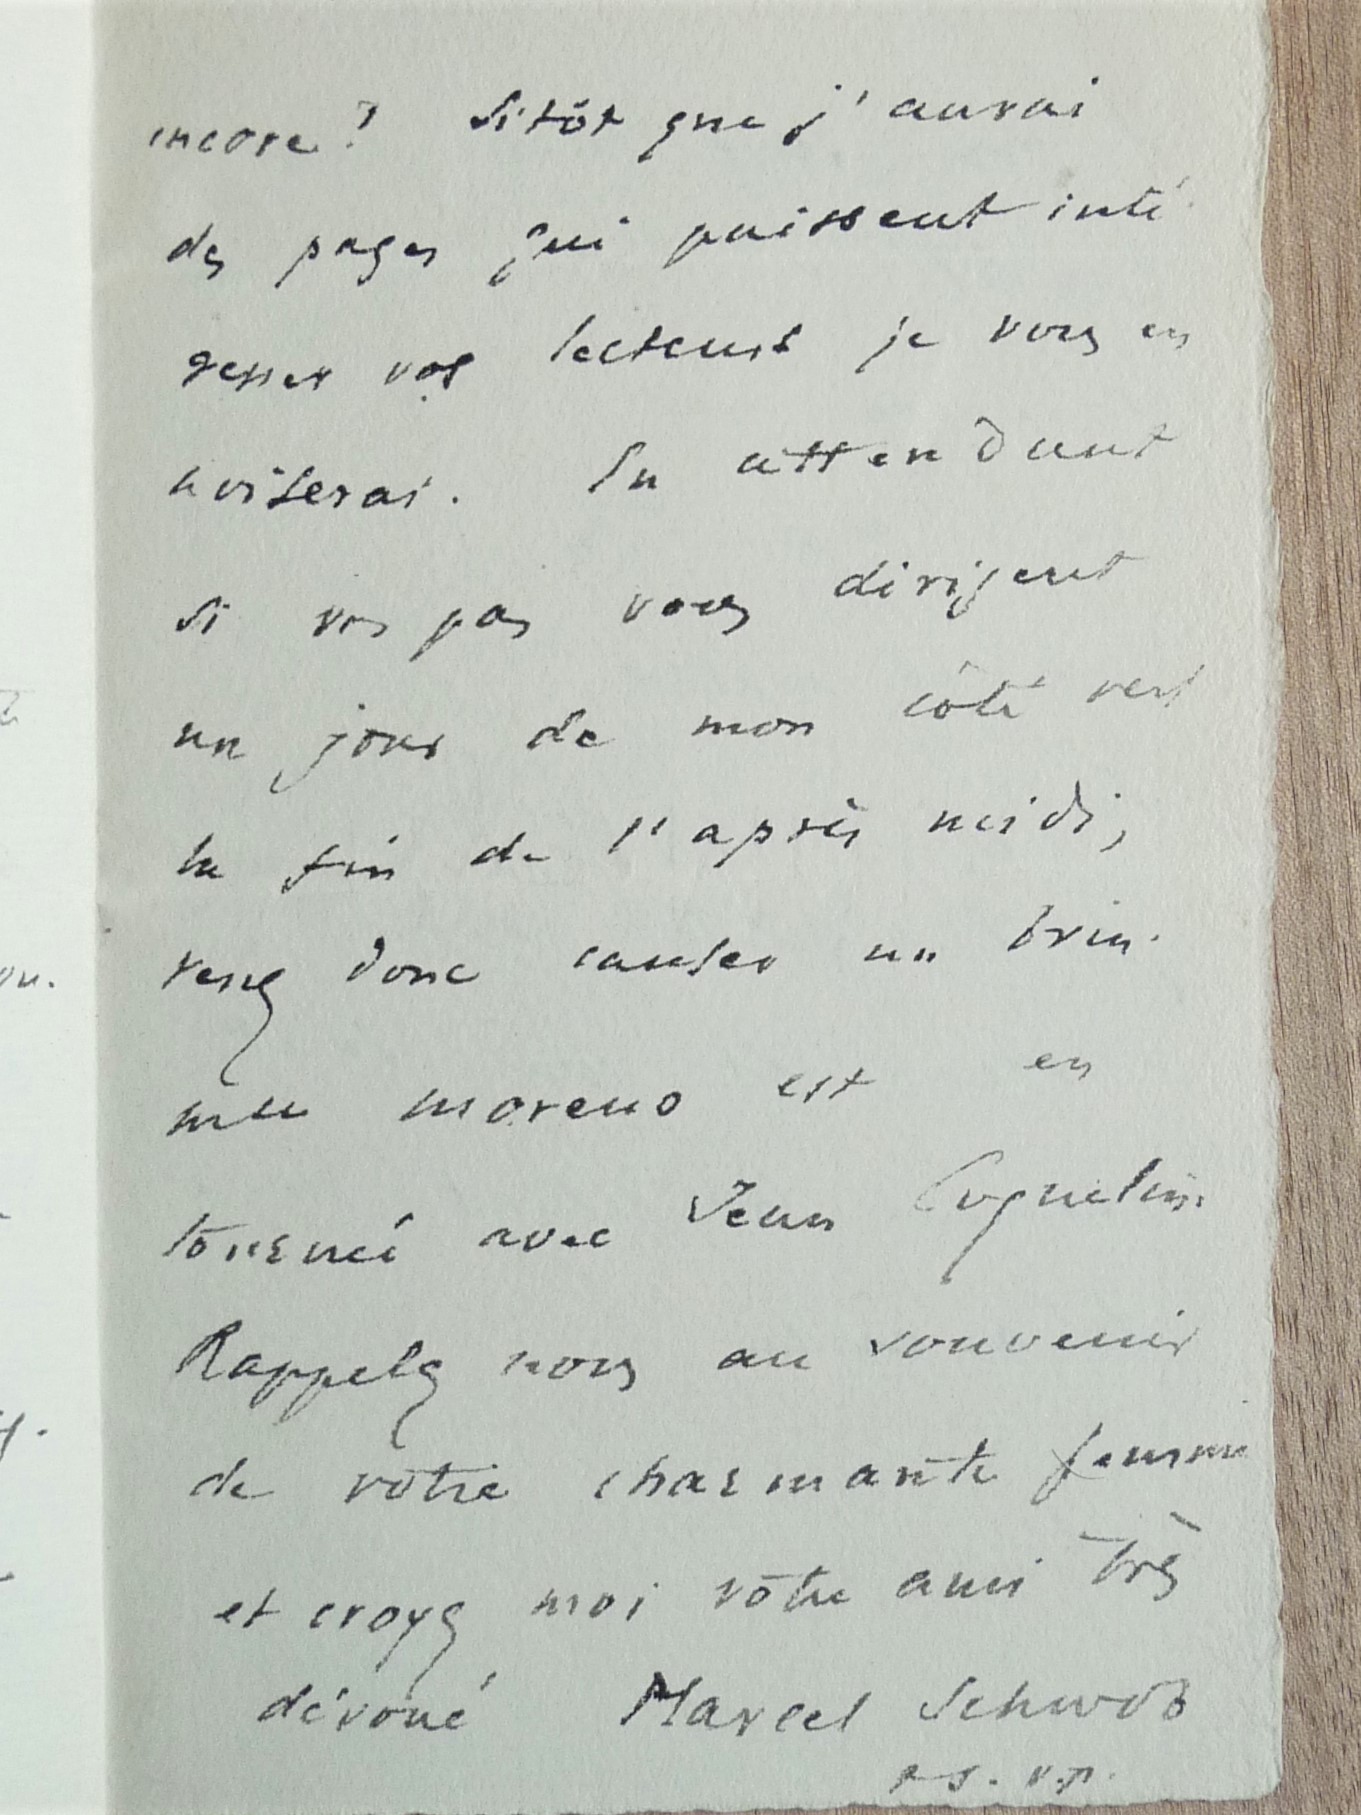 encore ? Sitôt que j'aurai
des pages qui puissent inté
resser vos lecteurs je vous en
aviserai. En attendant
si vos pas vous dirigent
un jour de mon côté vers
la fin de l'après midi,
venez donc causer un brin.
Mlle Moreno est en
tournée avec Jean Coquelin.
Rappelez nous au souvenir
de votre charmante femme
et croyez moi votre ami très
dévoué Marcel Schwob